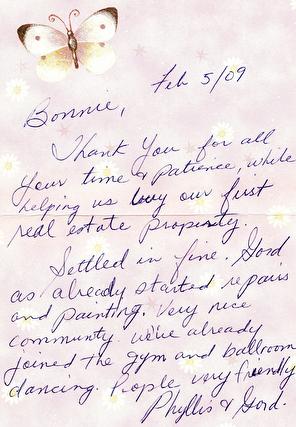 Feb 5/09
Bonnie,
Thank You for all
your time & patience, while
helping us buy our first
real estate property.
Settled in fine. Gord
as already started repairs
and painting. Very nice
community. We've already
joined the gym and ballroom
dancing. People very friendly
Phyllis & Gord.